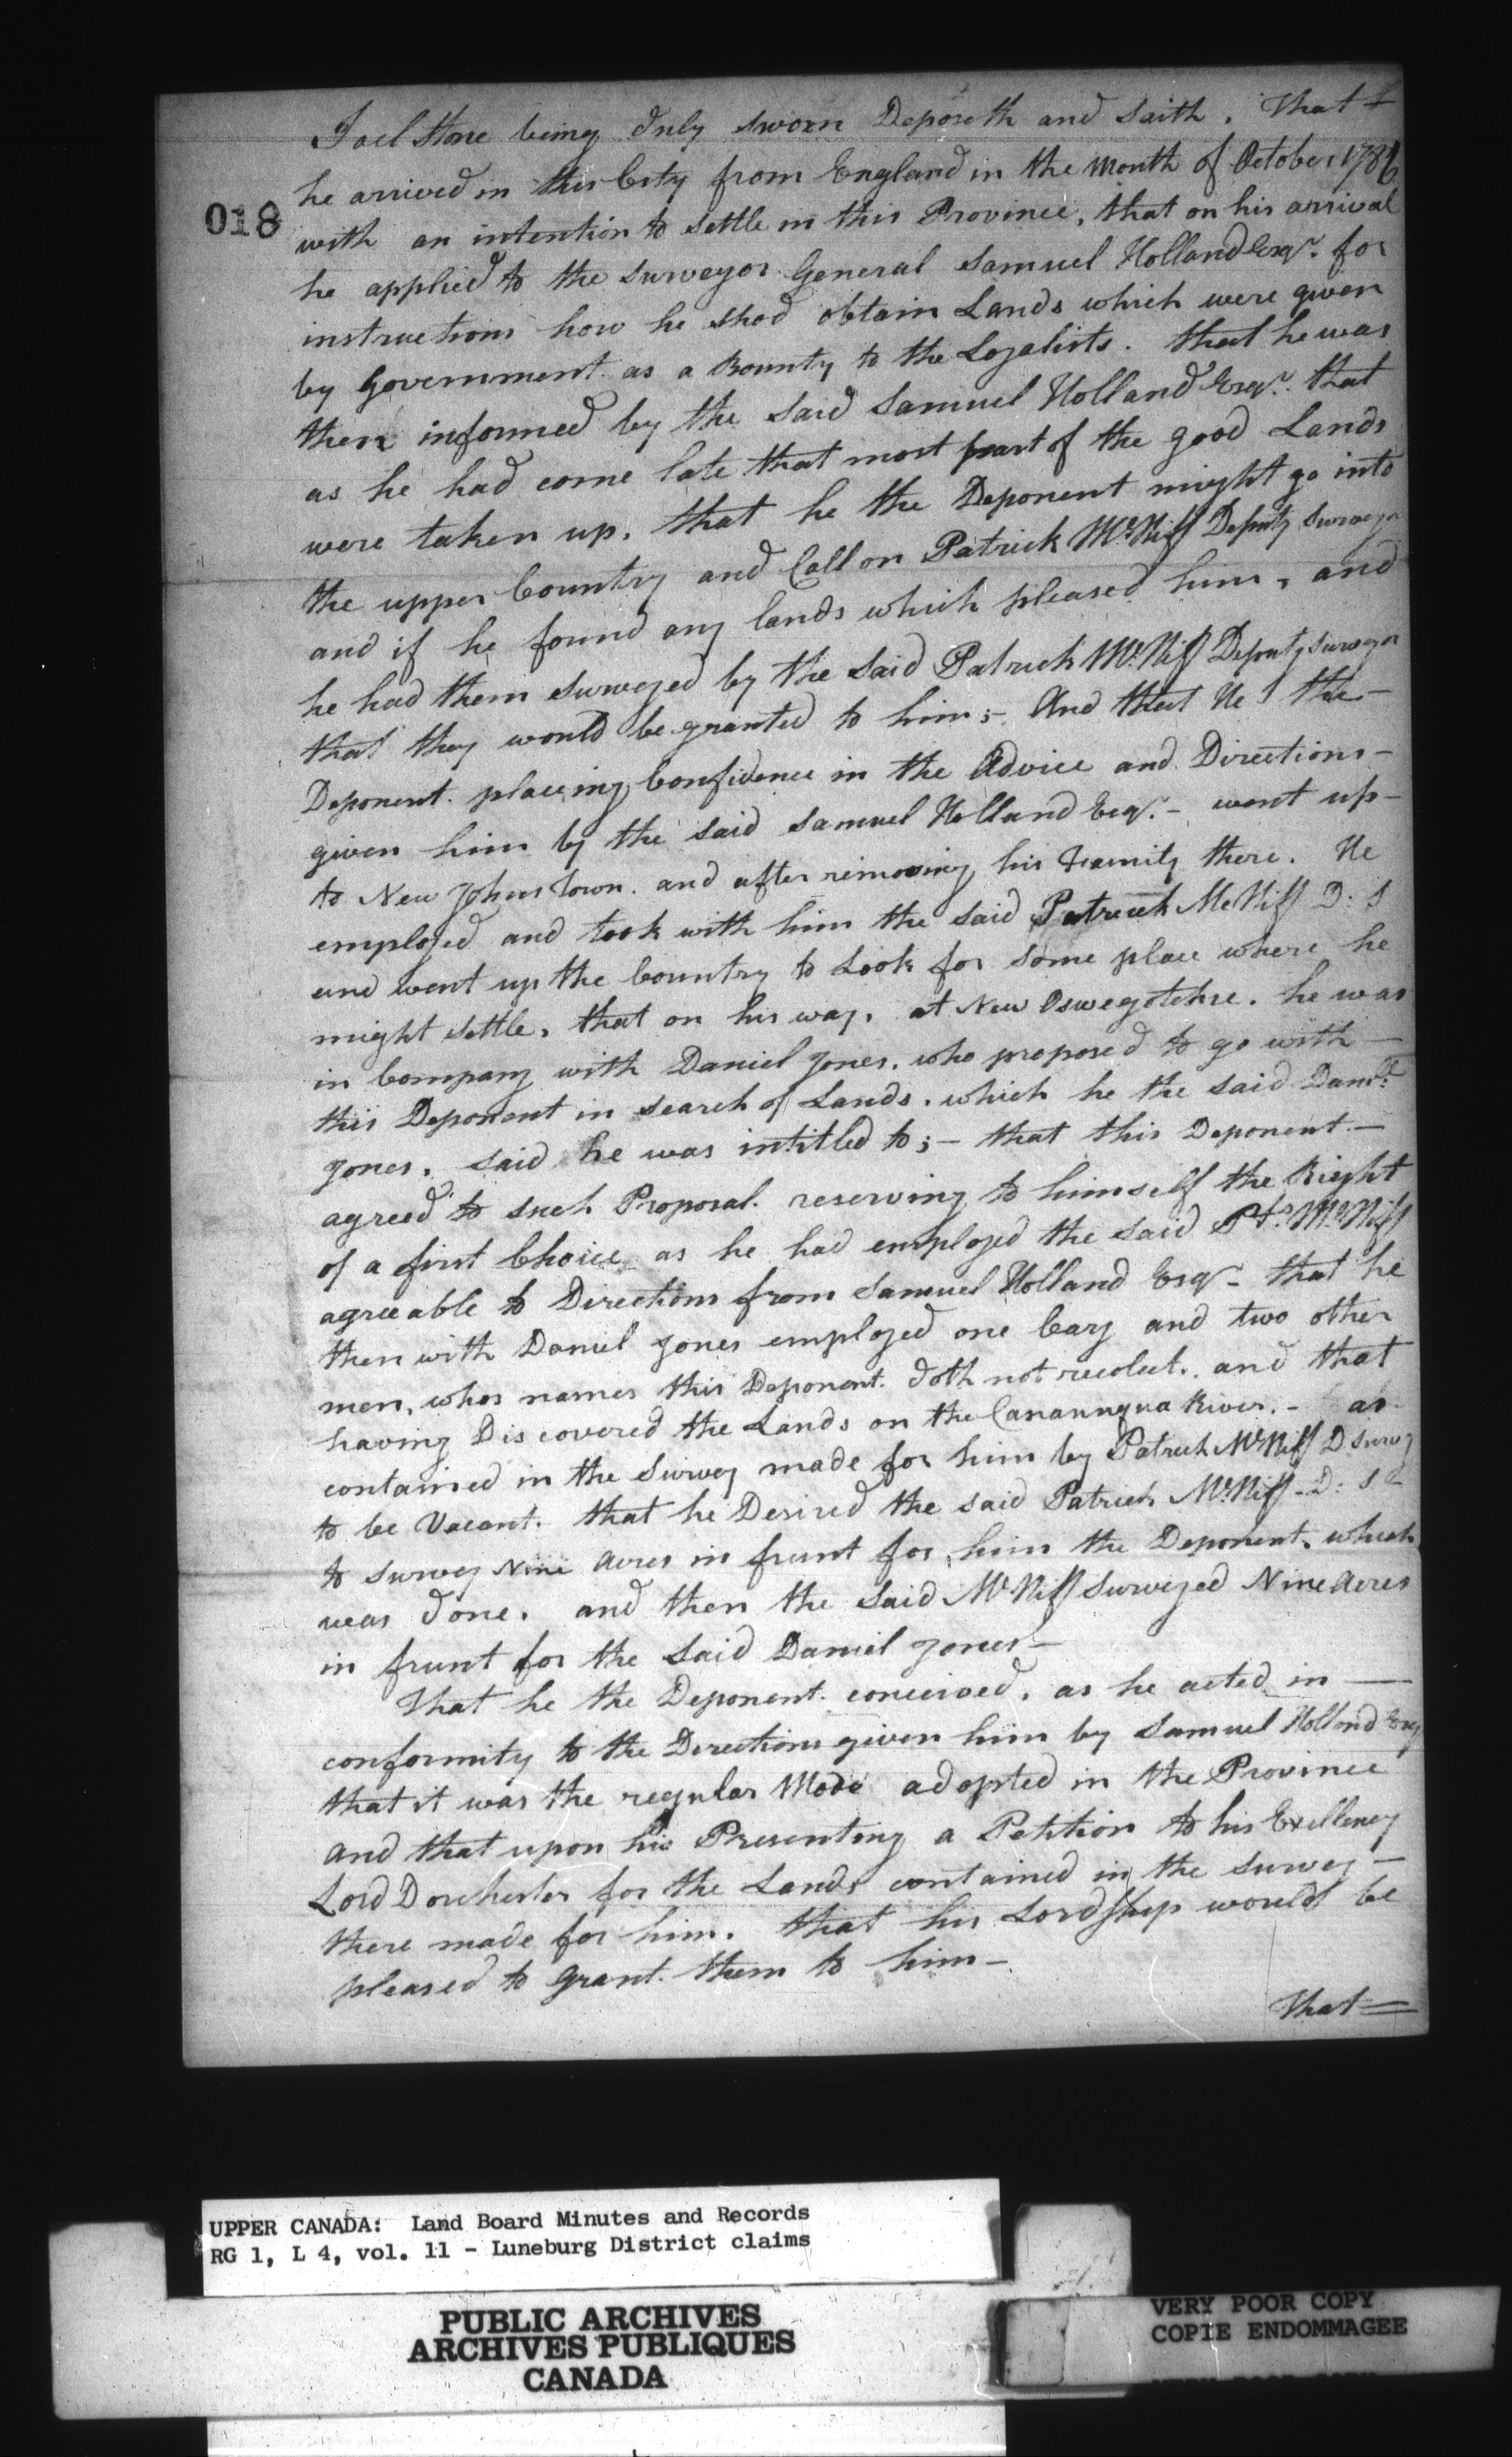 Joel Stone being duly sworn Deposeth and saith. That
he arrived in this City from England in the Month of October 1786
018
with an intention to settle in this Province, that on his arrival
he applied to the Surveyor General Samuel Holland Esqr. for
instructions how he shod obtain Lands which were given
by Government as a Bounty to the Loyalists. that he was
then informed by the said Samuel Holland Esqr. that
as he had come late that most part of the good Lands
were taken up, that he the Deponent might go into
the upper Country and Call on Patrick McNiff Deputy Surveyor
and if he found any lands which pleased him, and
he had them surveyed by the said Patrick McNiff Deputy Surveyor
that they would be granted to him;- And that He the-
Deponent placing Confidence in the Advice and Directions-
given him by the said Samuel Holland Esqr.- went up-
to New Johns Town. and after removing his Family there. He
employed and took with him the said Patrick McNiff D: S
and went up the Country to Look for some place where he
might settle, that on his way, at New Oswegotchie. he was
in Company with Daniel Jones. who proposed to go with-
this Deponent in search of Lands. which he the said Danll:
Jones. said he was intitled to;- that this Deponent-
agreed to such Proposal. reserving to himself the Right
of a first Choice as he had employed the said Pk: McNiff
agreeable to Directions from Samuel Holland Esqr- that he
then with Daniel Jones employed one Cary and two other
men, whos names this Deponent doth not recolect. and that
having Discovered the Lands on the Cananuqua River.- as
contained in the Survey made for him by Patrick McNiff D Survey
to be Vacant. that he Desired the said Patrick McNiff- D: S-
to survey Nine Acres in frunt for him the Deponent, which
was done. and then the said McNiff surveyed Nine Acres
in frunt for the said Daniel Jones-
That he the Deponent conceived, as he acted in-
conformity to the Directions given him by Samuel Holland Esq
that it was the regular Mode adopted in the Province
and that upon his Presenting a Petition to his Exellency
Lord Dorchester for the Lands contained in the survey-
there made for him. that his Lordship would be
pleased to grant them to him-
That=
UPPER CANADA: Land Board Minutes and Records
RG 1, L 4, vol. 11 - Luneburg District claims
PUBLIC ARCHIVES
ARCHIVES PUBLIQUES
CANADA
VERY POOR COPY
COPIE ENDOMMAGEE